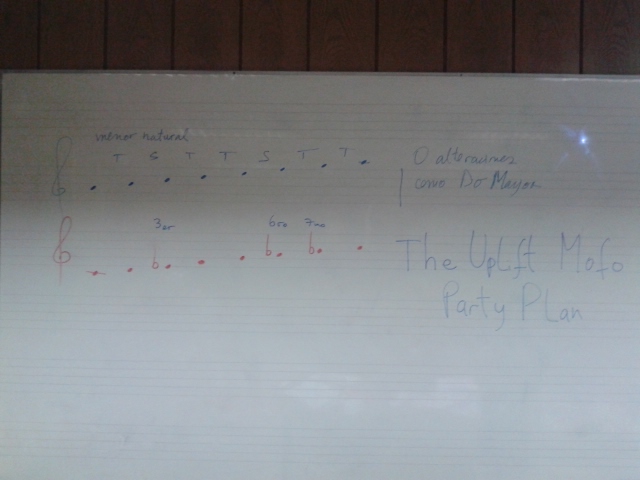 menor natural
T S T T S T T
0 alteraciones
como Do Mayor
3er 6ta 7ma
b b b
The UpLift Mofo
Party PLan